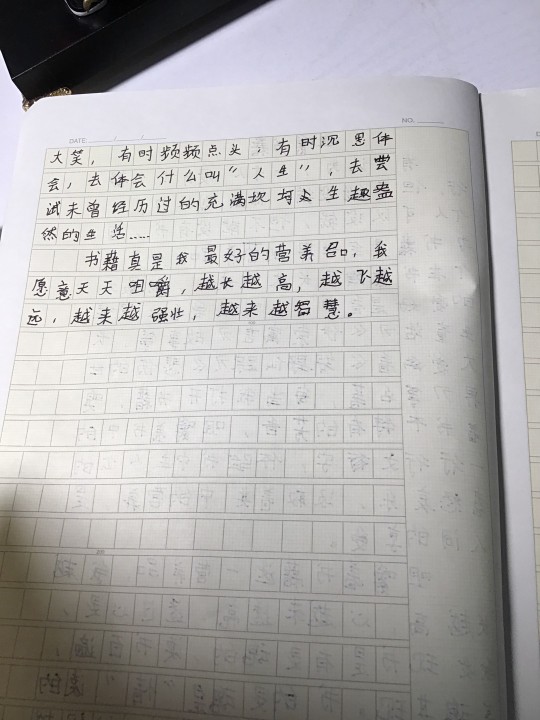 DATE: / /
NO.
大笑，有时频频点头，有时沉思体
会，去体会什么叫“人生”，去尝
试未曾经历过的充满坎坷人生趣盎
然的生活.....
书籍真是我最好的营养品，我
愿意天天咀嚼，越长越高，越飞越
远，越来越强壮，越来越智慧。